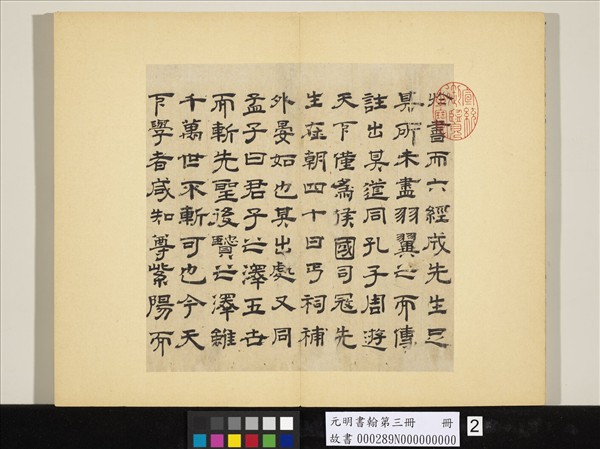 書而六經成先生足
其所未盡羽翼之而傳
註出其道同孔子周遊
天下僅為侯國司寇先
生在朝四十日丐祠補
外晏如也其出處又同
孟子曰君子之澤五世
而斬先聖後賢之澤雖
千萬世不斬可也今天
下學者咸知尊紫陽而
宣統御覽之寶
元明書翰第三冊 冊
故書 000289N000000000
2